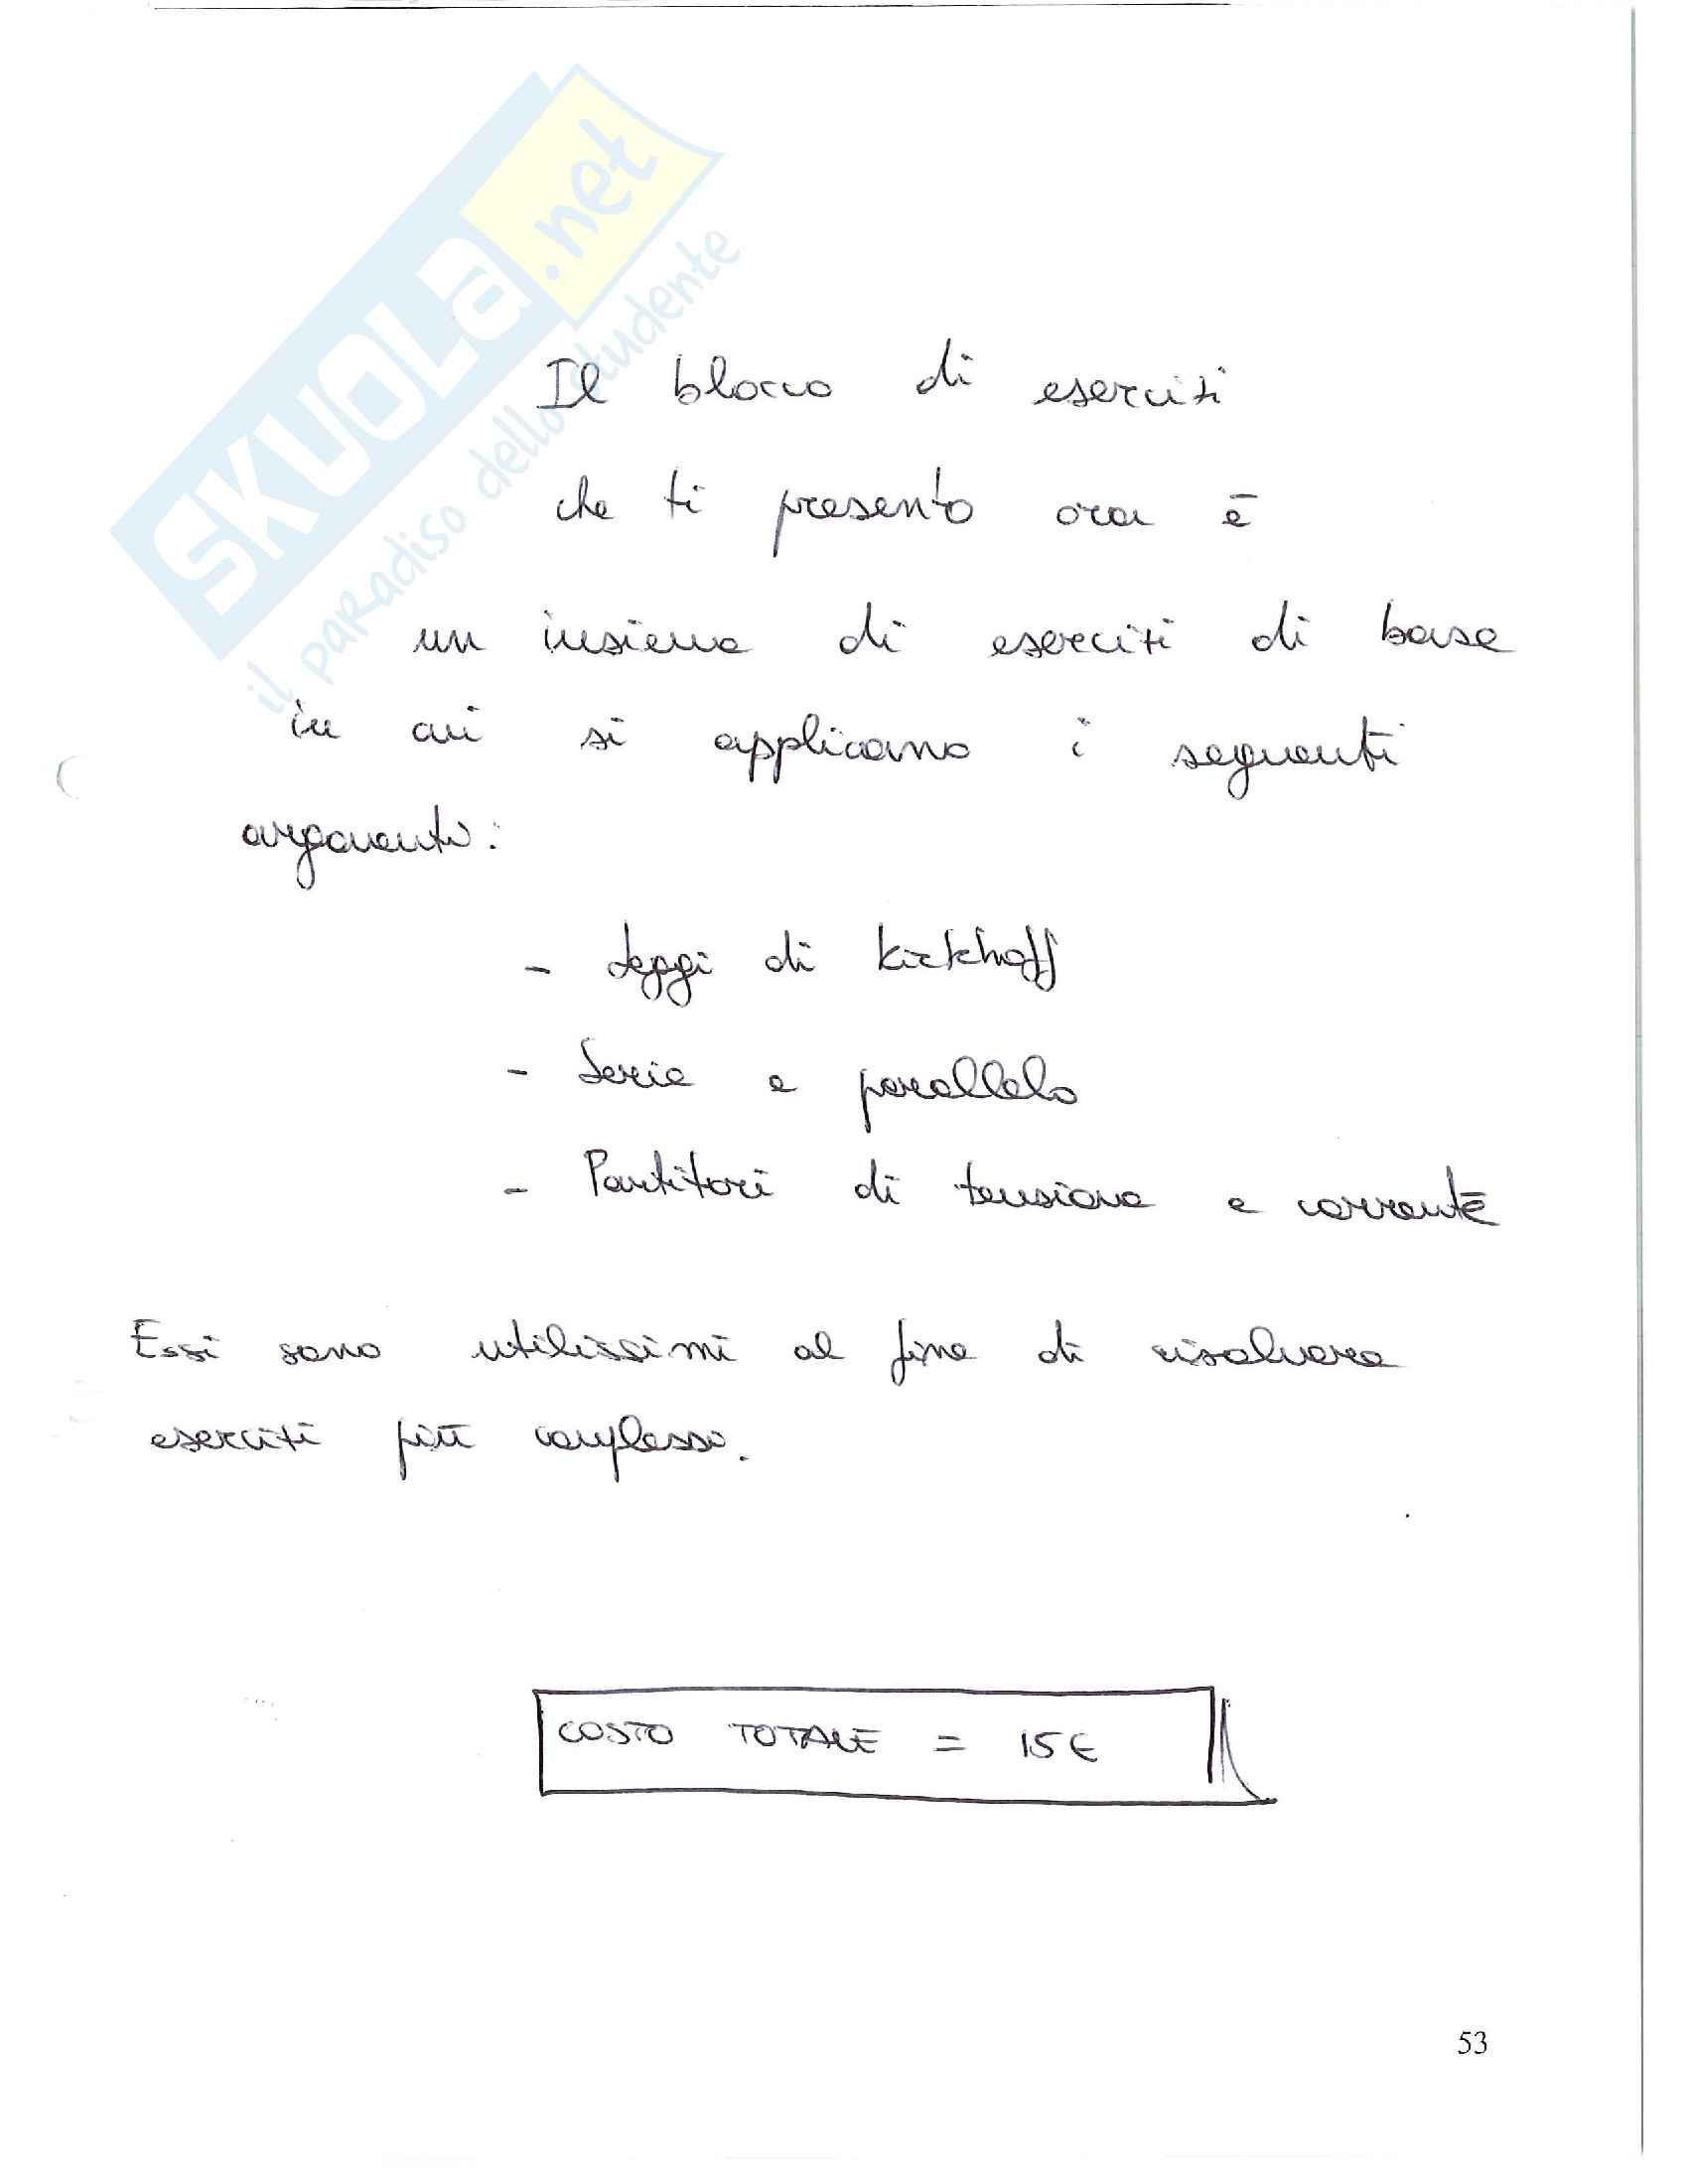 SKUOLA.net
il paradiso dello studente
Il blocco di eserciti
che ti presento ora è
un insieme di eserciti di base
in cui si applicano i seguenti
argomenti:
- Leggi di Kirkhoff
- Serie e parallelo
- Partitori di tensione e corrente
Essi sono utilissimi al fine di risolvere
eserciti più complessi.
COSTO TOTALE = 15€
53